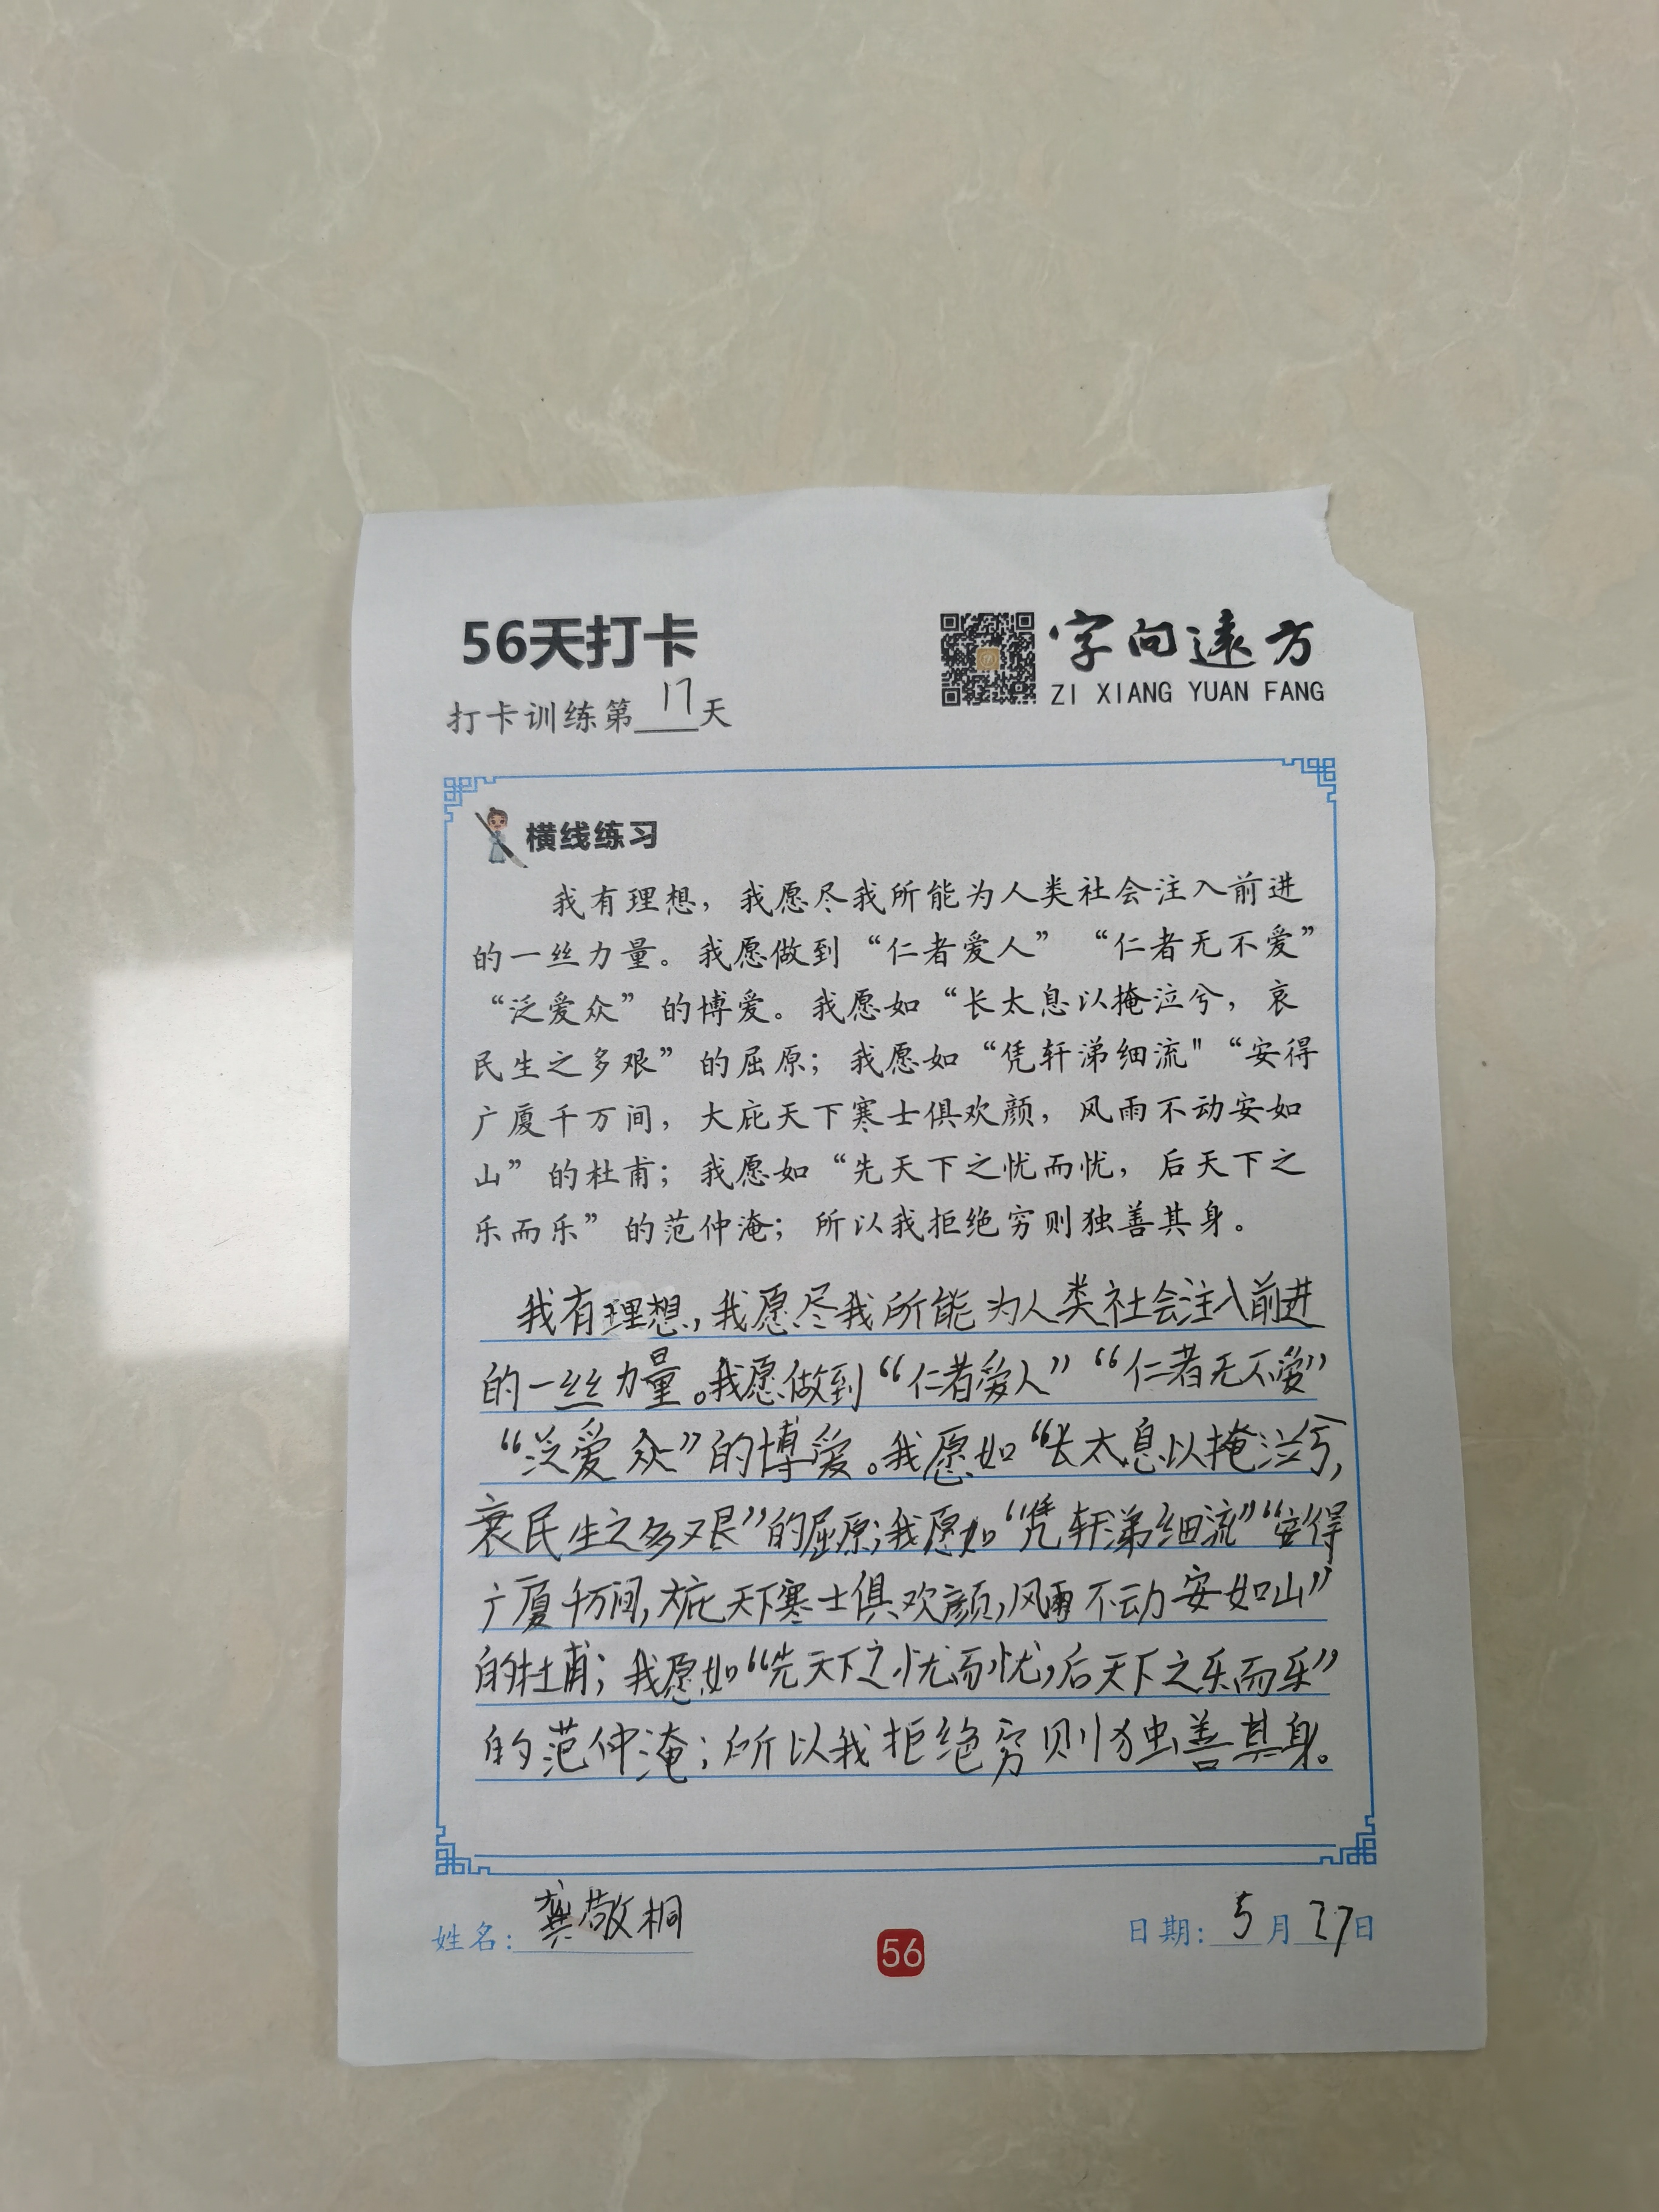 56天打卡
打卡训练第17天
字向遠方
ZI XIANG YUAN FANG
横线练习
我有理想，我愿尽我所能为人类社会注入前进
的一丝力量。我愿做到“仁者爱人”“仁者无不爱”
“泛爱众”的博爱。我愿如“长太息以掩泣兮，哀
民生之多艰”的屈原；我愿如“凭轩涕细流"“安得
广厦千万间，大庇天下寒士俱欢颜，风雨不动安如
山”的杜甫；我愿如“先天下之忧而忧，后天下之
乐而乐”的范仲淹；所以我拒绝穷则独善其身。
我有理想，我愿尽我所能为人类社会注入前进
的一丝力量。我愿做到“仁者爱人”“仁者无不爱”
“泛爱众”的博爱。我愿如“长太息以掩泣兮，
哀民生之多艰”的屈原；我愿如“凭轩涕细流”“安得
广厦千万间，大庇天下寒士俱欢颜，风雨不动安如山”
的杜甫；我愿如“先天下之忧而忧，后天下之乐而乐”
的范仲淹；所以我拒绝穷则独善其身。
姓名：龚敬桐
56
日期：5月27日